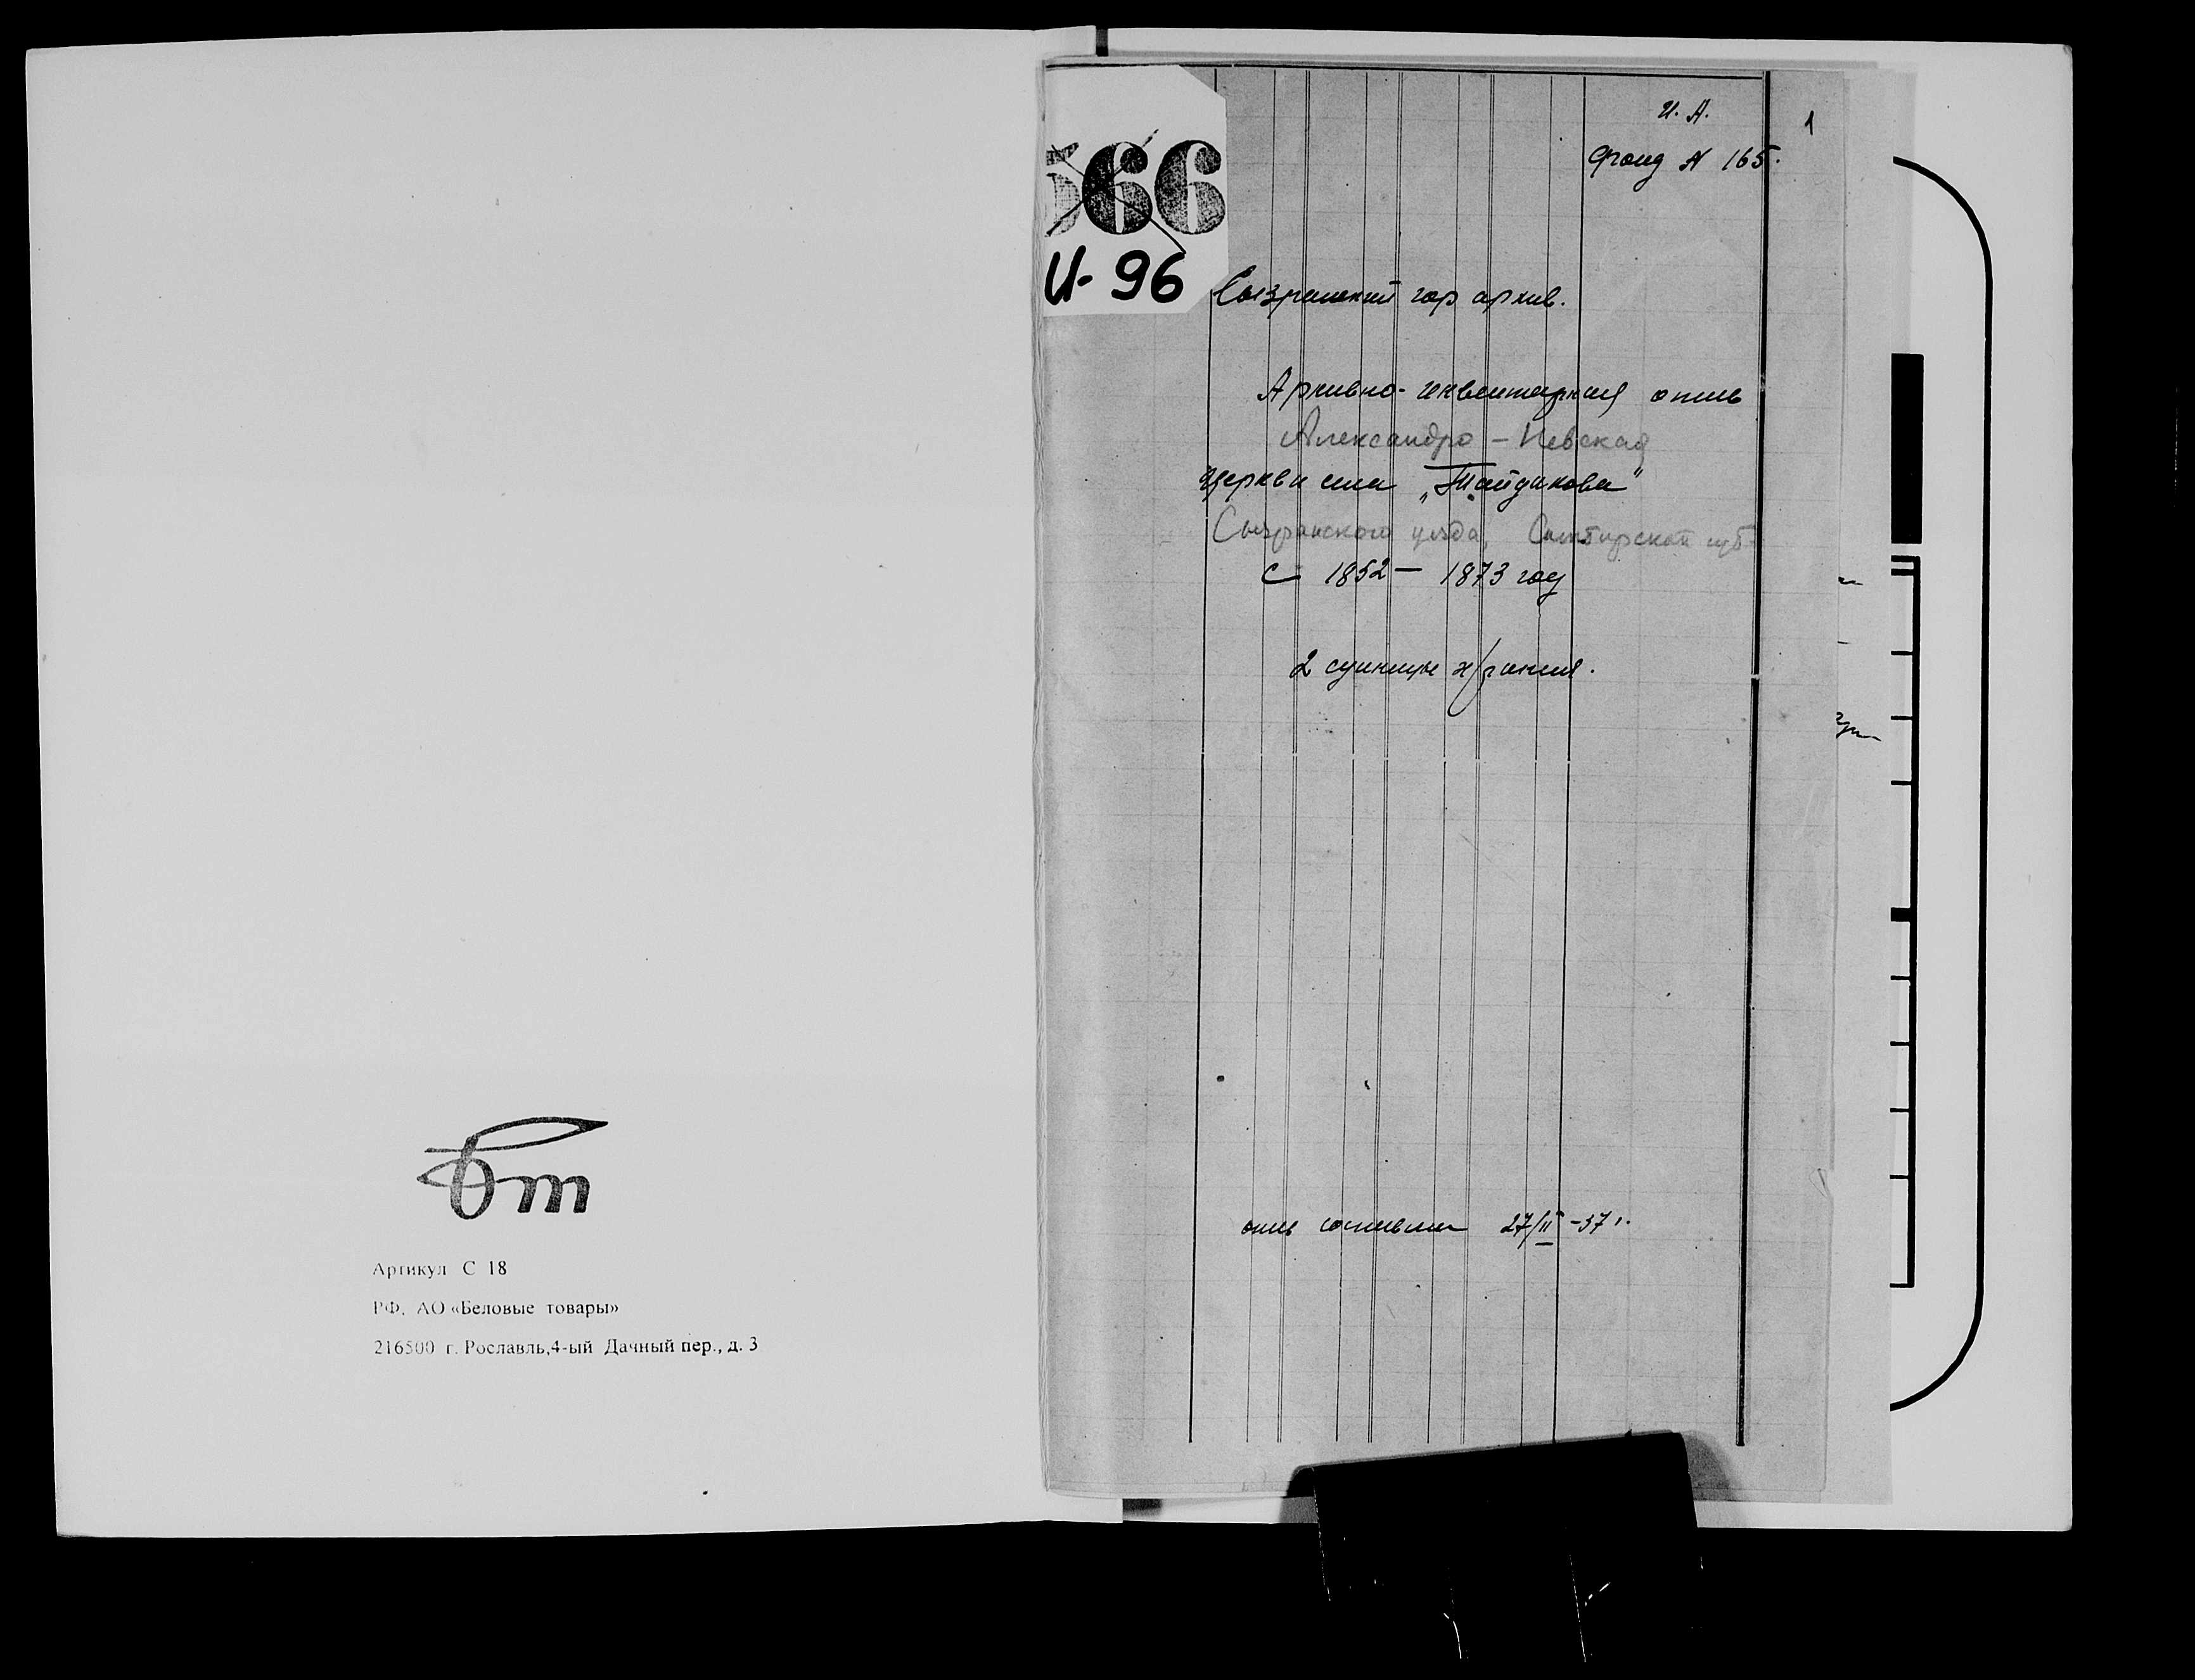 бт
Артикул С 18
РФ, АО «Беловые товары»
216500 г. Рославль,4-ый Дачный пер., д. 3
566
И-96
И. А.
1
Фонд N 165.
Сызранский гор архив.
Архивно-инвентарная опись
Александро-Невская
Церкви села „Тайдаково"
Сызранского уезда, Симбирской губ
с 1852 - 1873 год
2 единицы хранения.
опись составлена 27/II -37 г.